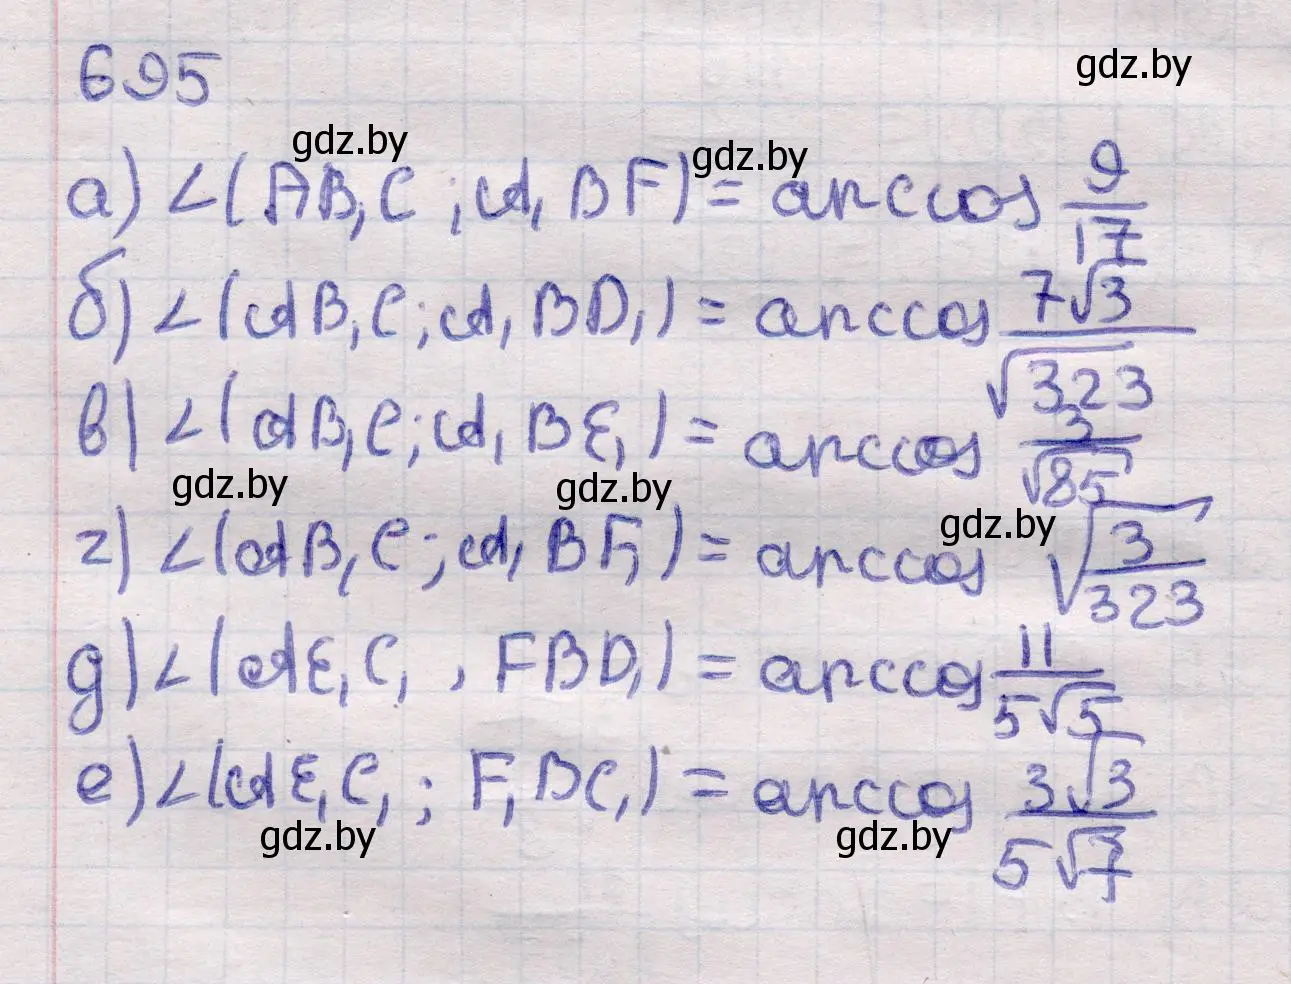 695
gdz.by
gdz.by
gdz.by
а) ∠(AB₁C ; A₁BF) = arccos 9/17
б) ∠(AB₁C; A₁BD₁) = arccos 7√3/√323
в) ∠(AB₁C; A₁BE₁) = arccos 3/√85
gdz.by
gdz.by
gdz.by
г) ∠(AB₁C; A₁BF₁) = arccos √(3/323)
д) ∠(AE₁C₁, FBD₁) = arccos 11/5√5
е) ∠(AE₁C₁; F₁BC₁) = arccos 3√3/5√7
gdz.by
gdz.by